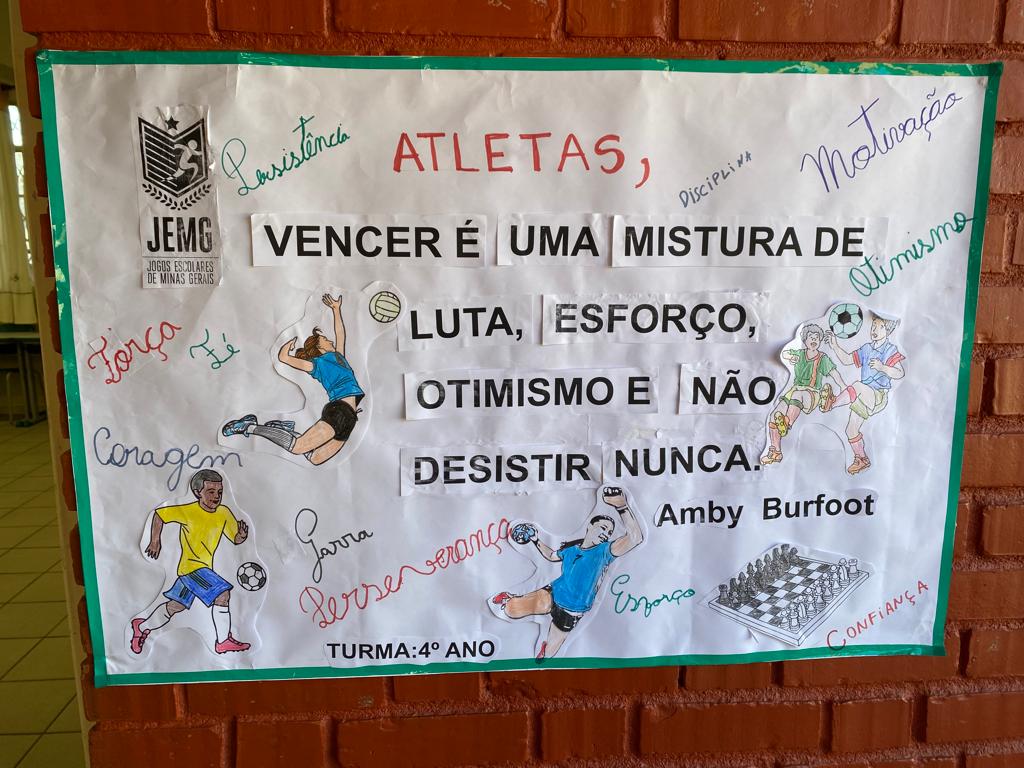 ATLETAS,
Persistência
DISCIPLINA
Motivação
JEMG
JOGOS ESCOLARES
DE MINAS GERAIS
VENCER É UMA MISTURA DE
Otimismo
LUTA, ESFORÇO,
Força
Fé
OTIMISMO E NÃO
Coragem
DESISTIR NUNCA.
Amby Burfoot
Garra
Perseverança
Esforço
CONFIANÇA
TURMA:4º ANO